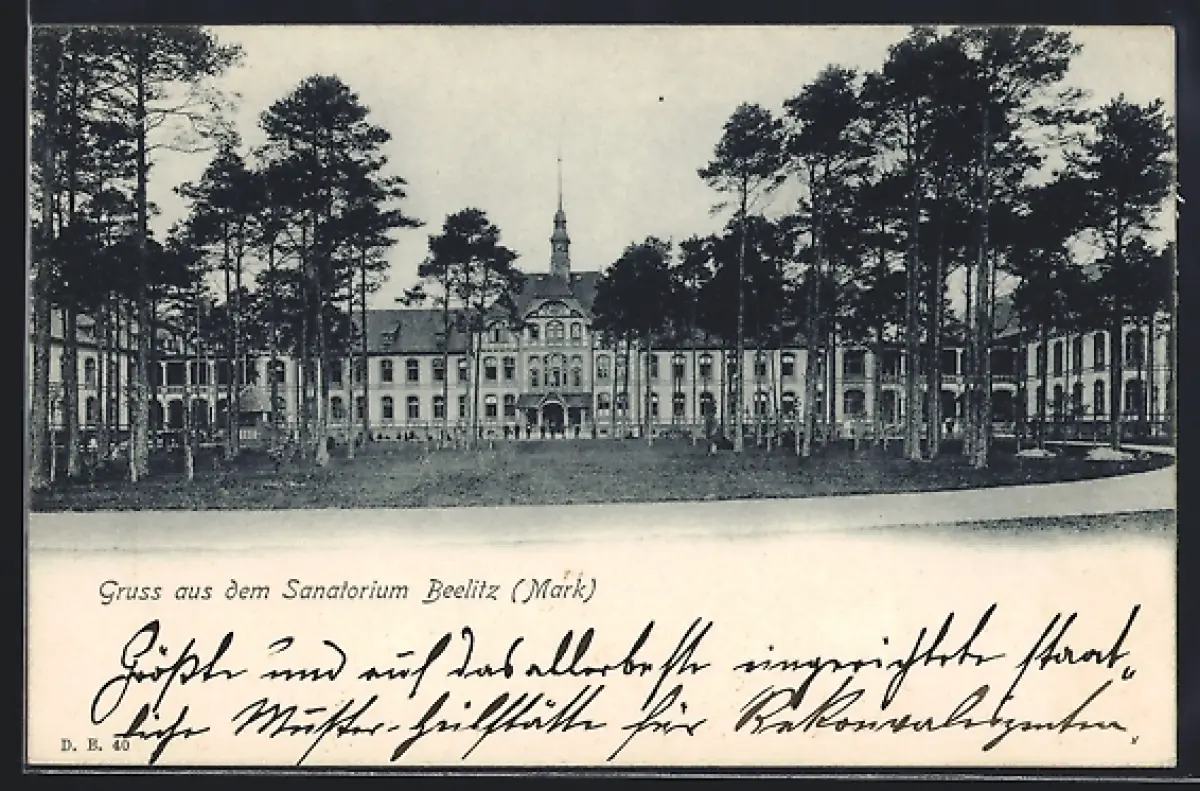 Gruss aus dem Sanatorium Beelitz (Mark)
Größte und auf das allerbeste eingerichtete staat„
liche Muster-Heilstätte für Rekonvaleszenten.
D. B. 40